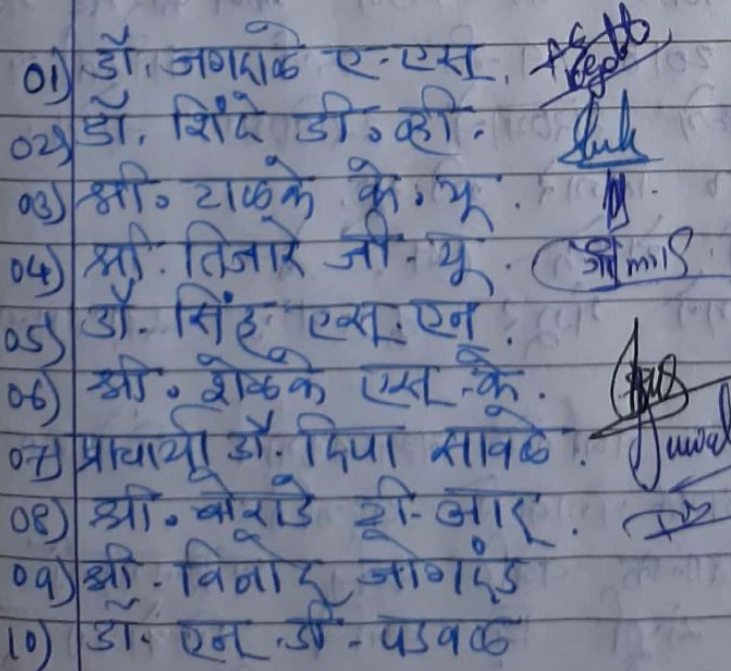 01) डॉ. जगदाळे ए.एस.
02) डॉ. शिंदे डी. व्ही.
03) श्री. टाळके के. यू.
04) श्री. तिजारे जी. यू.
05) डॉ. सिंह एस. एन.
06) श्री. शेळके एस. के.
07) प्राचार्या डॉ. दिपा सावळे.
08) श्री. बोराडे टी. आर.
09) श्री. विनोद जोगदंड
10) डॉ. एन. डी. पडवळ